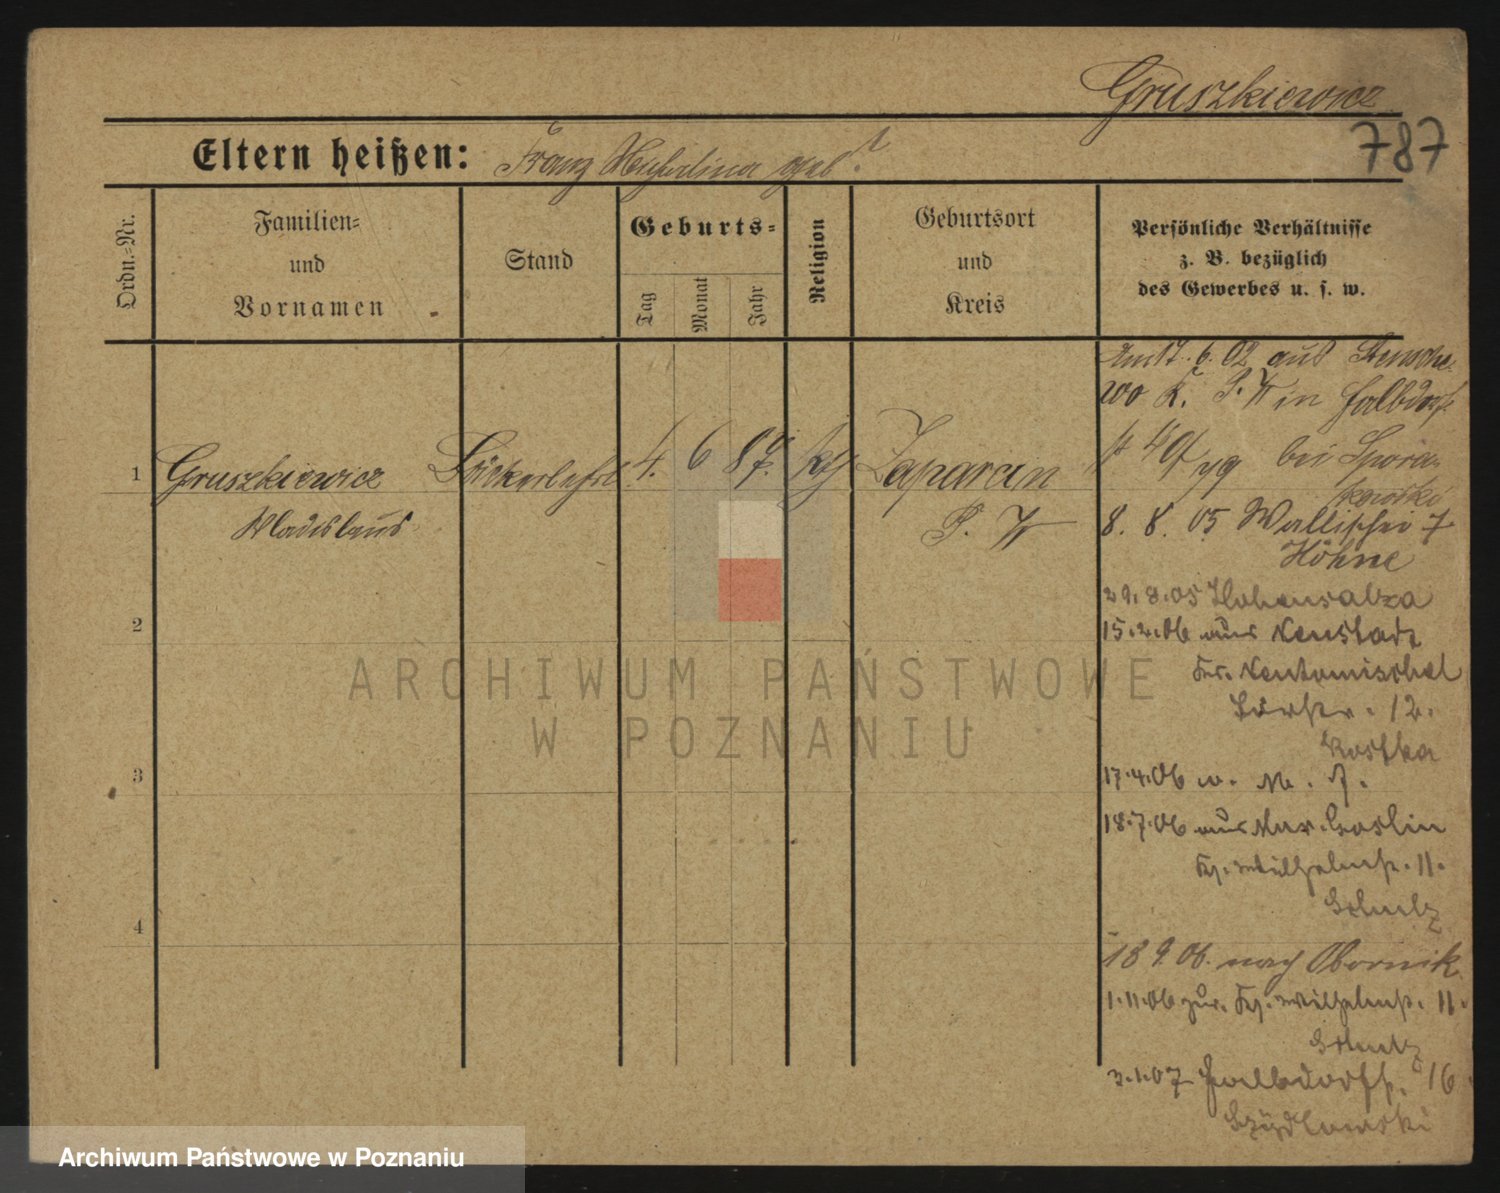 Gruszkiewicz
787
Eltern heißen: Franz geb ?
Ordn.-Nr.
Familien-
und
Vornamen
Stand
Geburts-
Tag
Monat
Jahr
Religion
Geburtsort
und
Kreis
Persönliche Verhältnisse
z. B. bezüglich
des Gewerbes u. s. w.
1
Gruszkiewicz
Wladislaus
Bäckerlehrl.
4. 6 87. kth
P. W
6. 02 aus Stensche
wo K. P. W in Halbdorf
bei Spora-
kowski
8. 8. 05 Wallischei 7
Höhne
29.8.05 Hohensalza
15.2.06 aus Neustadt
Kr. Neutomischel
12.
Kostka
17.4.06
18.7.06 aus Mur. Goslin
Kg. Wilhelmstr. 11.
Scholz
18 9. 06. nach Obornik
1.11.06 zur. Kg. Wilhelmstr. 11.
Scholz
3.1.07 Halbdorfstr. 16
Szydlowski
2
3
4
ARCHIWUM PAŃSTWOWE
W POZNANIU
Archiwum Państwowe w Poznaniu